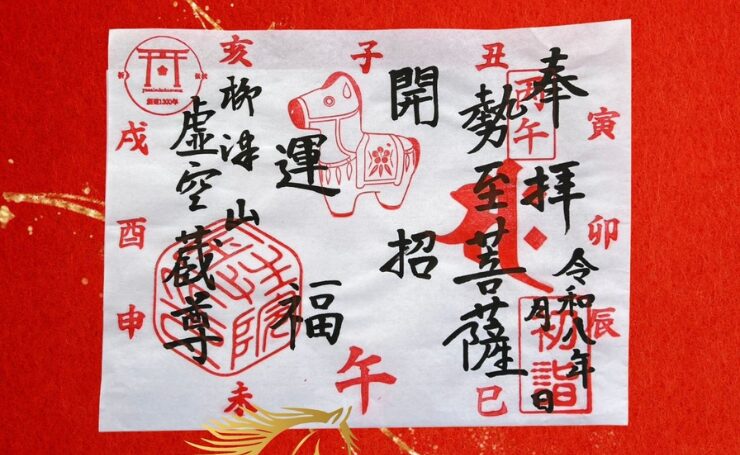 奉拝
丙午
令和八年
月 日
初詣
勢至菩薩
開運
招福
柳津山
虚空蔵尊
子
丑
寅
卯
辰
巳
午
未
申
酉
戌
亥